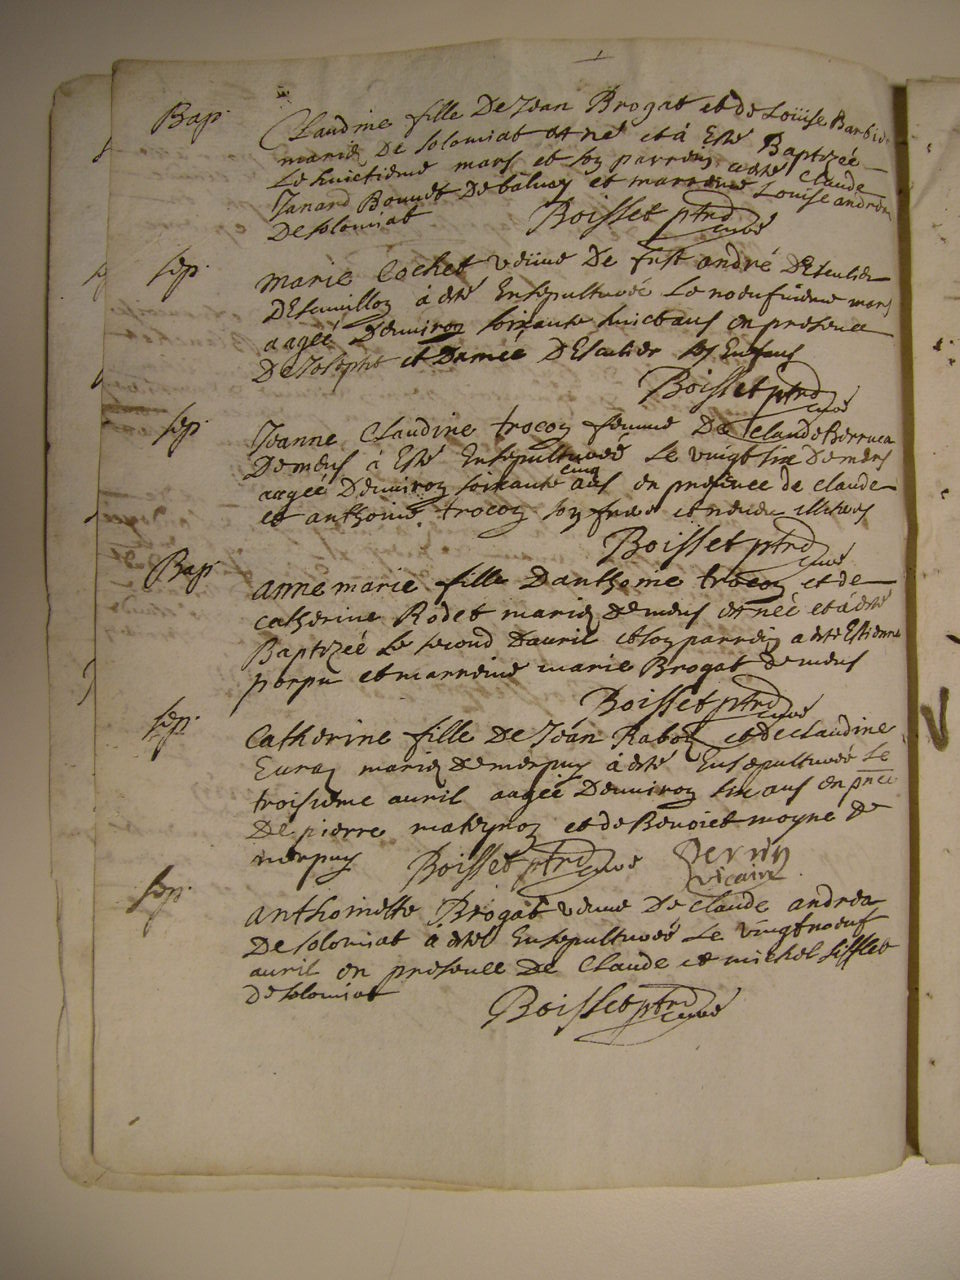 Bap.
Claudine fille De Jean Brogat et de Loüise Barbier
mariez De solomiat est né et à Esté Baptizée
Le huictieme mars et soy parrein a esté Claude
Janard Bouuet De et marreine Loüise andrea
De solomiat Boisset ptre curé
sep.
marie Cochet veüue De fust andré DEsculier
à esté Ensepulturée Le noeufuieme mars
aagée Denuiron soixante huict ans en presence
De Joseph et DEsculier ses Enfans
Boisset ptre curé
sep.
Jeanne Claudine trocoz femme De Claude
De mens à Esté Ensepulturée Le vingt six De mars
aagée Denuiron soixante cinq ans en presence de claude
et anthoine trocoz soy frere et neueu illiteres
Boisset ptre curé
Bap.
anne marie fille Danthoine trocoz et de
catherine Rodet mariez De meus est née et à esté
Baptizée Le second Dauril et soy parrein a esté Estienne
porpu et marreine marie Brogat De meus
Boisset ptre curé
sep.
Catherine fille De Jean Raboz et de claudine
mariez De merpuy à esté Ensepulturée Le
troisieme auril aagée Denuiron six ans en pnce
De pierre mateynoz et de Benoict moyne De
merpuy Boisset ptre curé Perrin
vicaire
sep.
anthoinette Brogat veuue De claude andrea
De solomiat à esté Ensepulturée Le vingt noeuf
auril en presence De Claude et michel sifflet
De solomiat Boisset ptre curé